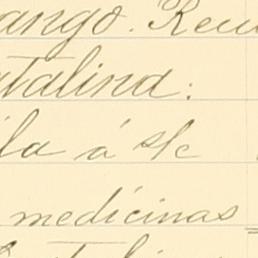 ango. Reci
atalina:
ila á s/c
medicinas